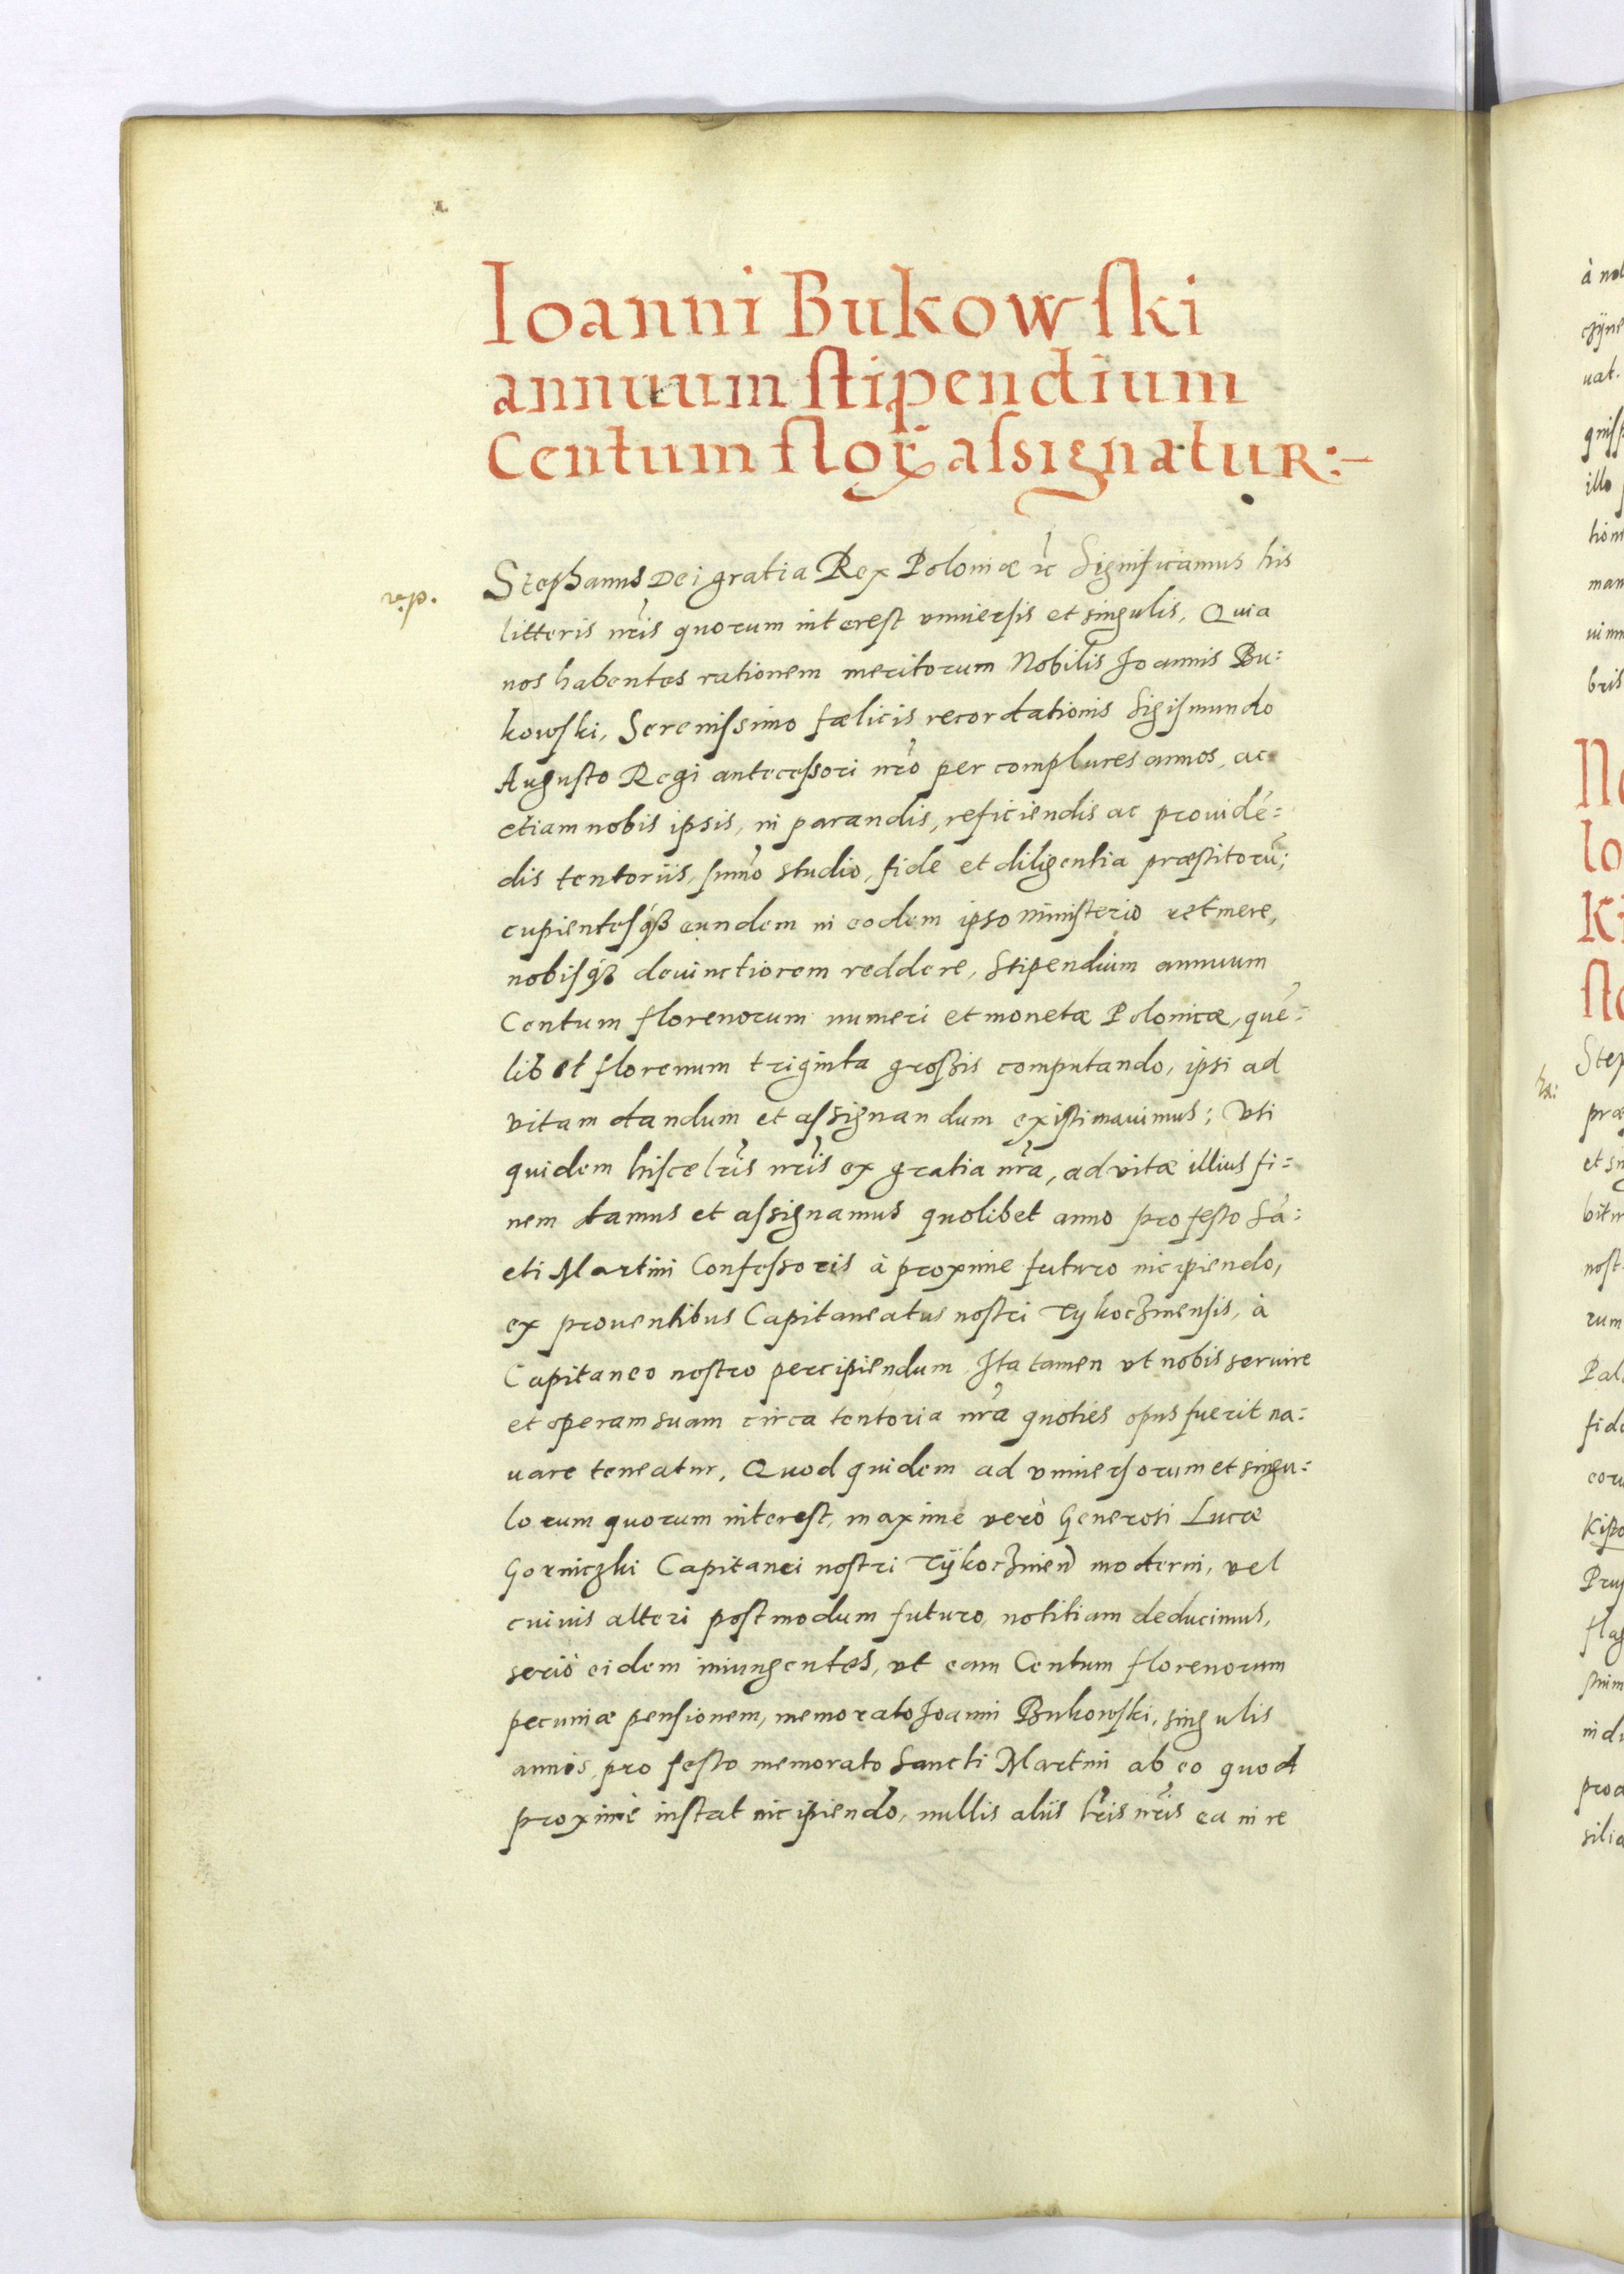 Ioanni Bukowski
annuum stipendium
Centum flor assignatur:-
rep.
Stephanus Dei gratia Rex Poloniæ etc Significamus his
litteris nris quorum interest vniuersis et singulis, Quia
nos habentes rationem meritorum Nobilis Joannis Bu:
kowski, Serenissimo fælicis recordationis Sigismundo
Augusto Regi antecessori nro per complures annos, ac
etiam nobis ipsis, in parandis, reficiendis ac prouidē:
dis tentoriis, summo studio, fide et diligentia præstitorū;
cupientesq́ꝫ eundem in eodem ipso ministerio retinere,
nobisq́ꝫ deuinctiorem reddere, Stipendium annuum
Centum florenorum numeri et monetæ Polonicæ, quē:
libet florenum triginta grossis computando, ipsi ad
vitam dandum et assignandum existimauimus; Vti
quidem hisce lris nris ex gratia nra, ad vitæ illius fi:
nem damus et assignamus quolibet anno pro festo Sā:
cti Martini Confessoris à proxime futuro incipiendo,
ex prouentibus Capitaneatus nostri Tykoczinensis, à
Capitaneo nostro percipiendum. Ita tamen vt nobis seruire
et operam suam circa tentoria nra quoties opus fuerit na:
uare teneatur. Quod quidem ad vniuersorum et singu:
lorum quorum interest, maxime verò Generosi Lucæ
Gorniczki Capitanei nostri Tÿkoczinen moderni, vel
cuiuis alteri postmodum futuro, notitiam deducimus,
seriò eidem iniungentes, vt eam Centum florenorum
pecuniæ pensionem, memorato Joanni Bukowski, singulis
annis, pro festo memorato Sancti Martini ab eo quod
proximè instat incipiendo, nullis aliis lris nris ea in re
à no
uat.
illo
man
bris
No
lo
Ki
Step
præ
et si
bit
nost
rum
Pal
fide
Prus
pro
silia